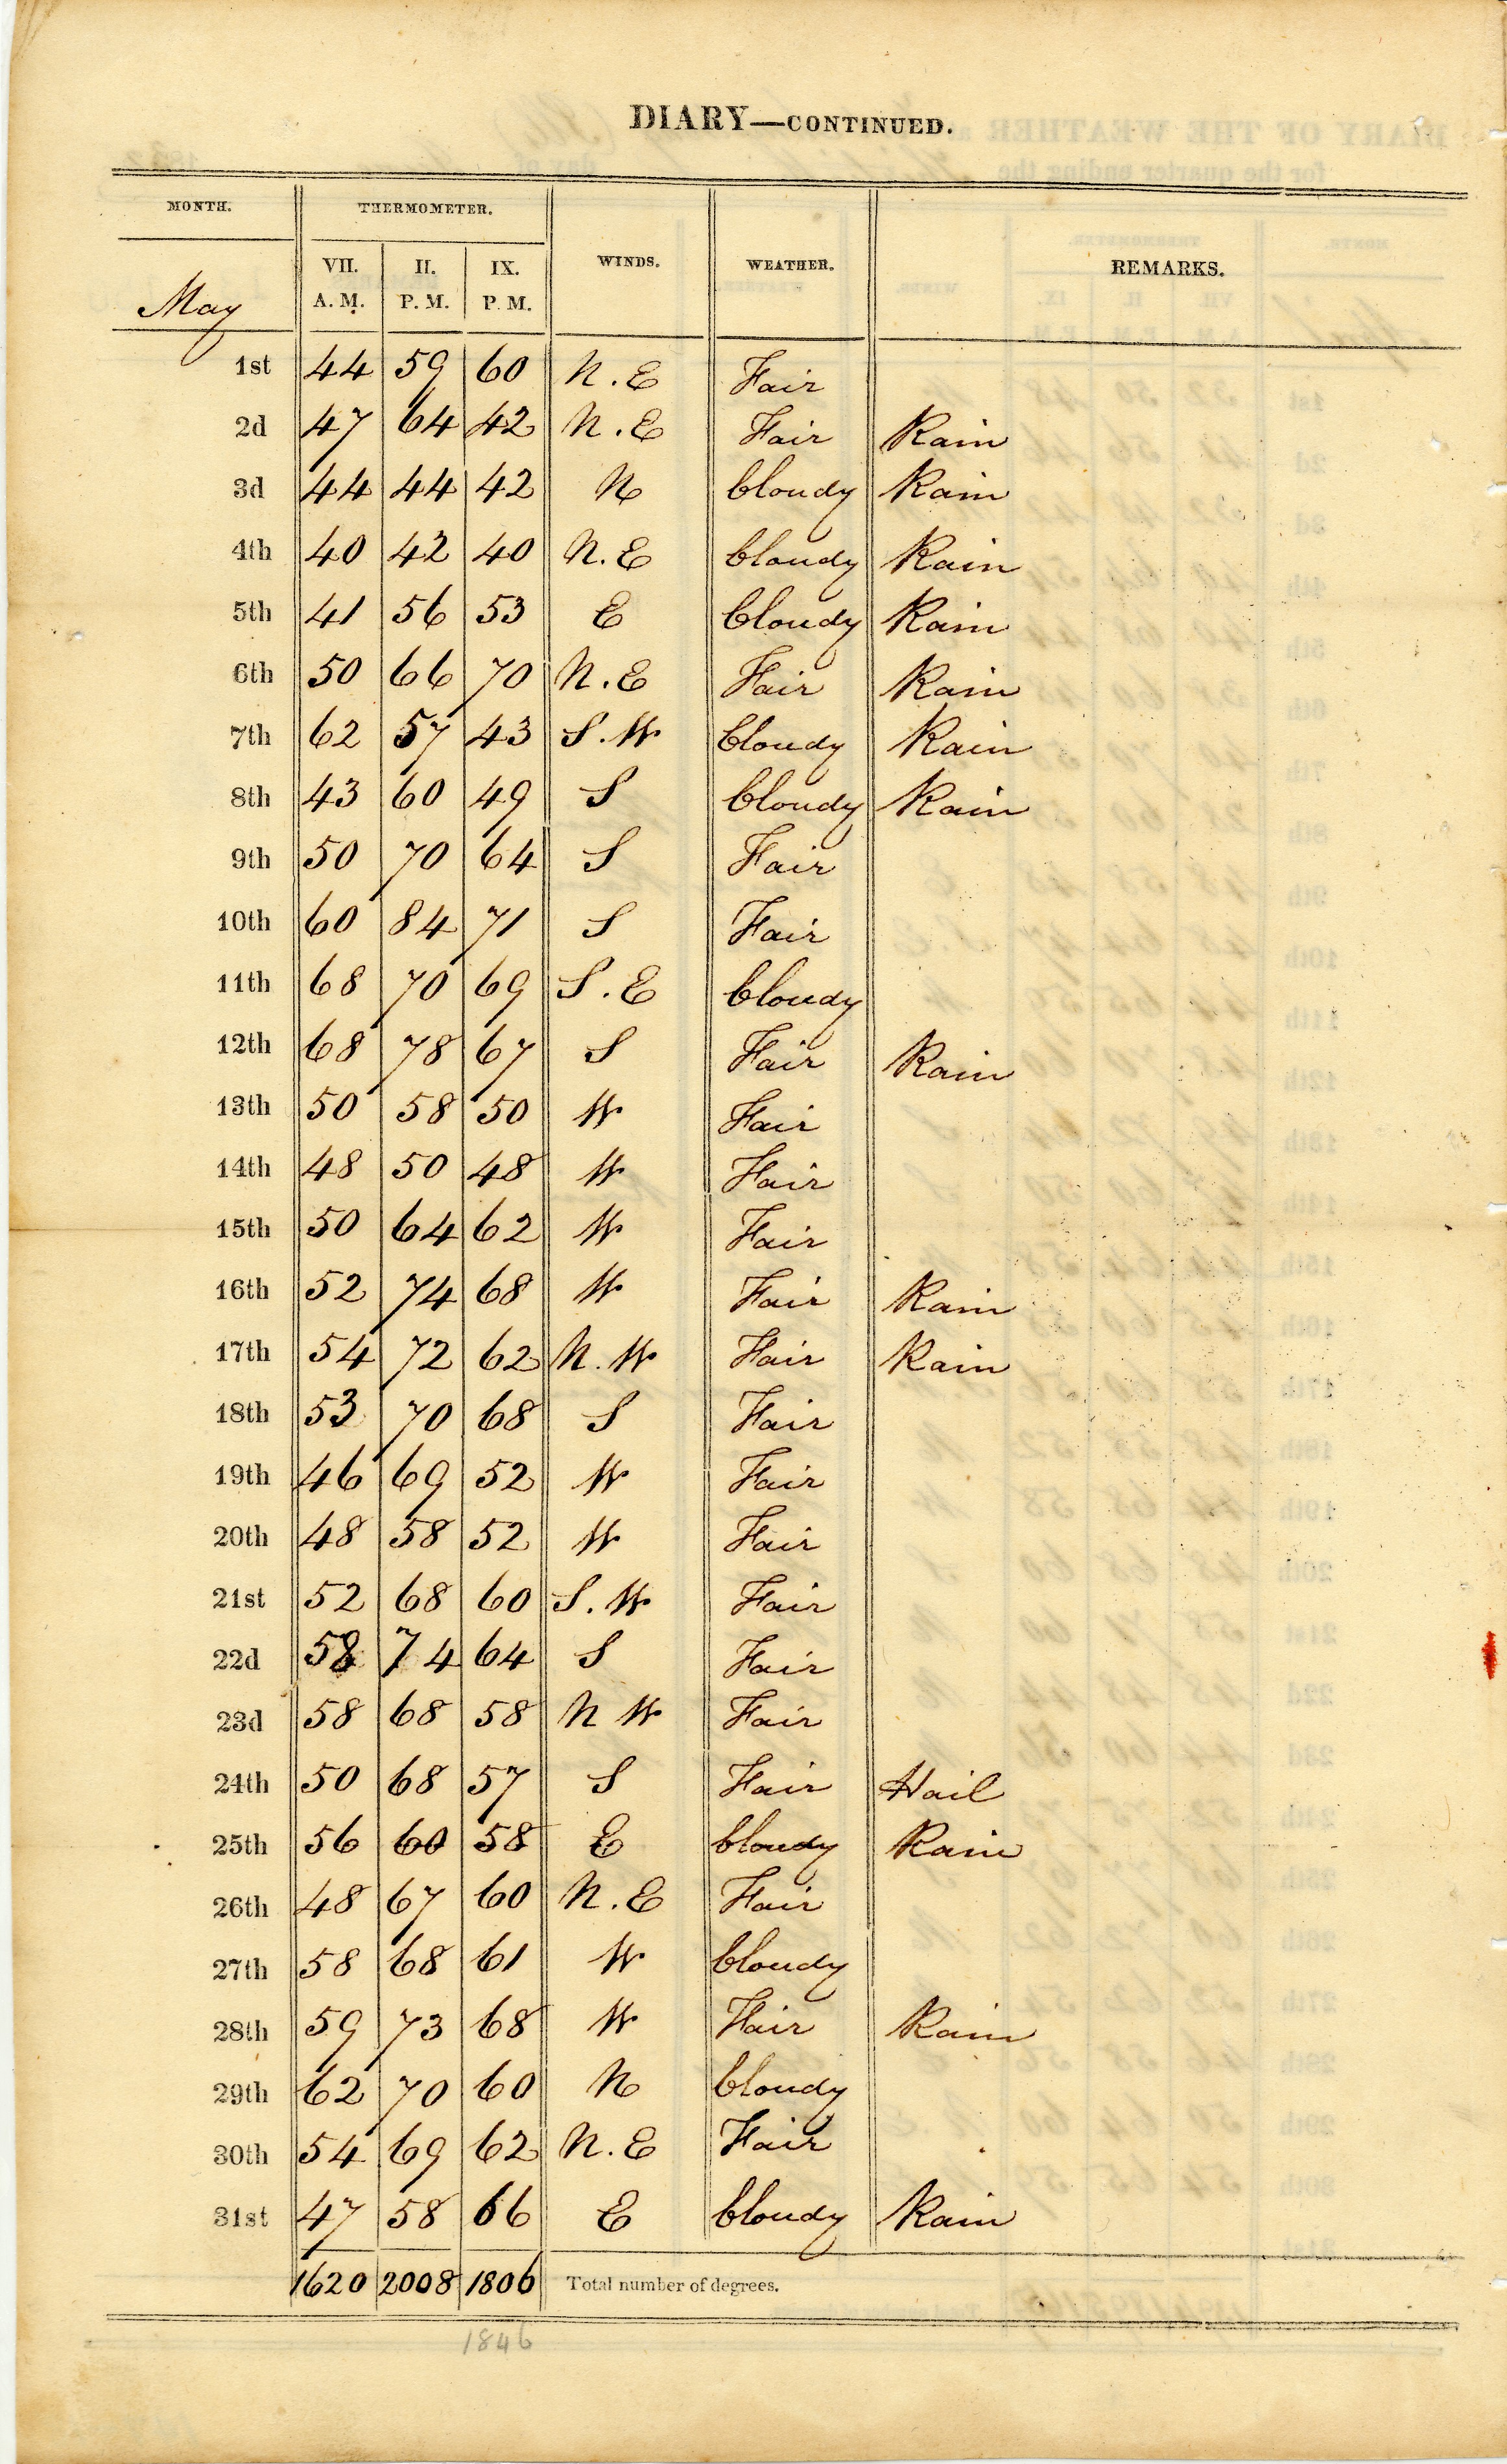 DIARY—CONTINUED.
MONTH. THERMOMETER. WINDS. WEATHER. REMARKS.
VII. II. IX.
May A. M. P. M. P. M.
1st 44 59 60 N. E Fair
2d 47 64 42 N. E Fair Rain
3d 44 44 42 N Cloudy Rain
4th 40 42 40 N. E Cloudy Rain
5th 41 56 53 E Cloudy Rain
6th 50 66 70 N. E Fair Rain
7th 62 57 43 S. W Cloudy Rain
8th 43 60 49 S Cloudy Rain
9th 50 70 64 S Fair
10th 60 84 71 S Fair
11th 68 70 69 S. E Cloudy
12th 68 78 67 S Fair Rain
13th 50 58 50 W Fair
14th 48 50 48 W Fair
15th 50 64 62 W Fair
16th 52 74 68 W Fair Rain
17th 54 72 62 N. W Fair Rain
18th 53 70 68 S Fair
19th 46 69 52 W Fair
20th 48 58 52 W Fair
21st 52 68 60 S. W Fair
22d 58 74 64 S Fair
23d 58 68 58 N W Fair
24th 50 68 57 S Fair Hail
25th 56 60 58 E Cloudy Rain
26th 48 67 60 N. E Fair
27th 58 68 61 W Cloudy
28th 59 73 68 W Fair Rain
29th 62 70 60 N Cloudy
30th 54 69 62 N. E Fair
31st 47 58 66 E Cloudy Rain
1620 2008 1806 Total number of degrees.
1846